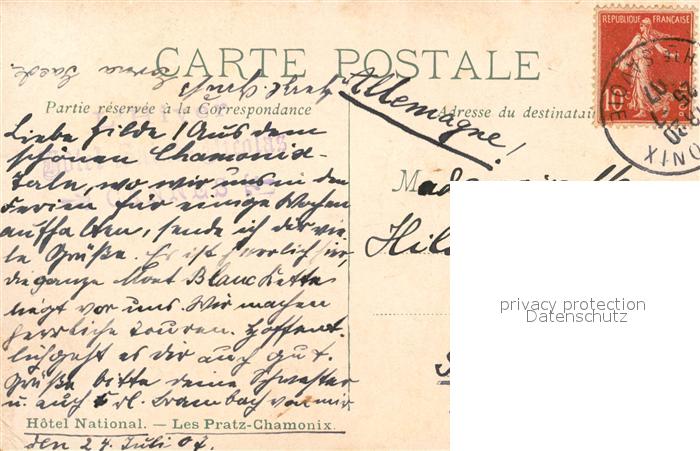 CARTE POSTALE
Partie réservée à la Correspondance
Adresse du destinatai
Allemagne!
REPUBLIQUE FRANÇAISE
10
ONIX
Liebe Hilde! Aus dem
schönen Chamonix-
Tale, wo wir uns in den
Ferien für einige Wochen
aufhalten, sende ich dir vie
le Grüße. Es ist herrlich hier,
die ganze Mont Blanc Kette
liegt vor uns. Wir machen
herrliche Touren. Hoffent-
lich geht es dir auch gut.
Grüße bitte deine Schwester
u. auch Frl. Trambach von mir
Hôtel National. — Les Pratz-Chamonix.
den 24. Juli 07.
Hil
privacy protection
Datenschutz